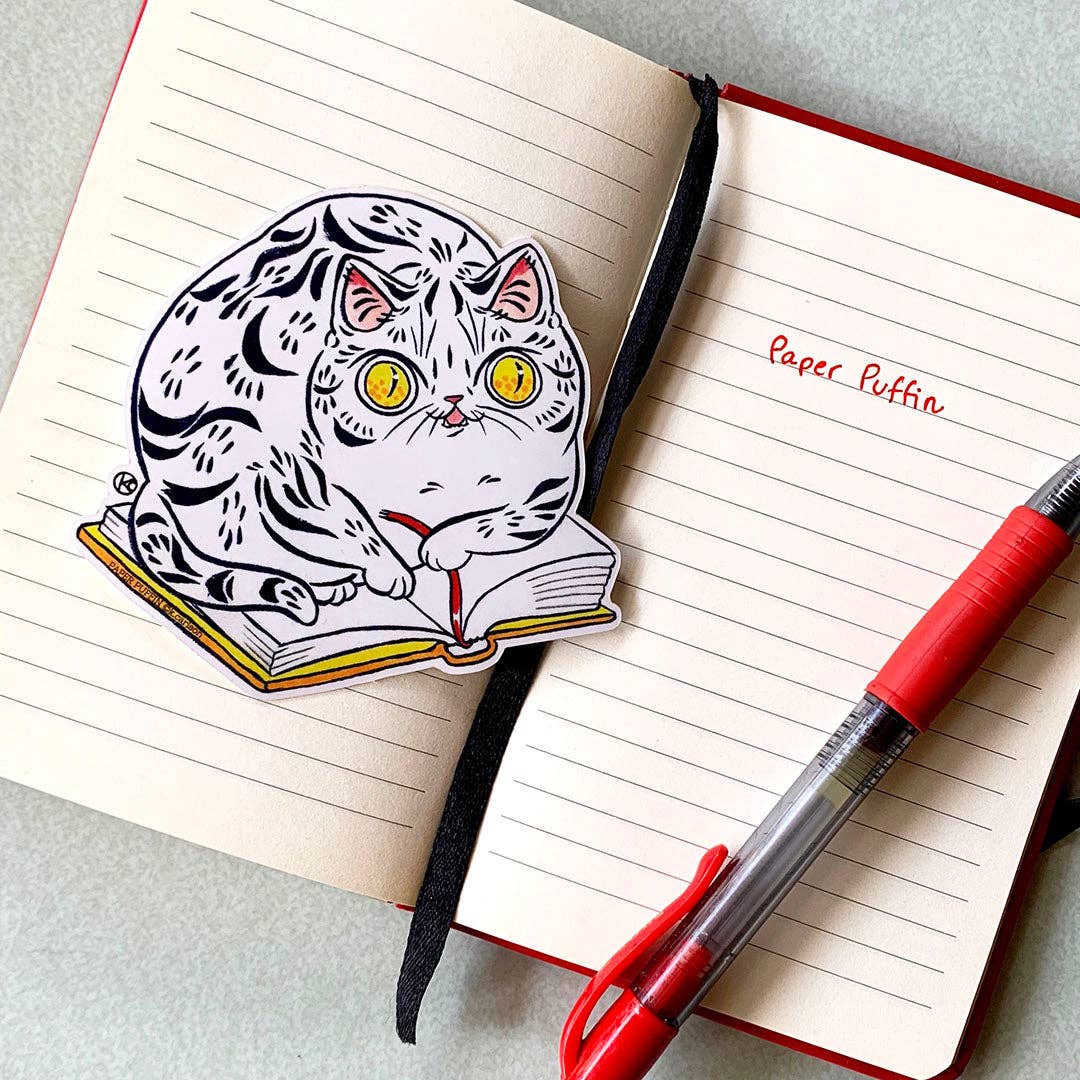 KC
PAPER PUFFIN ©k.carlson
Paper Puffin